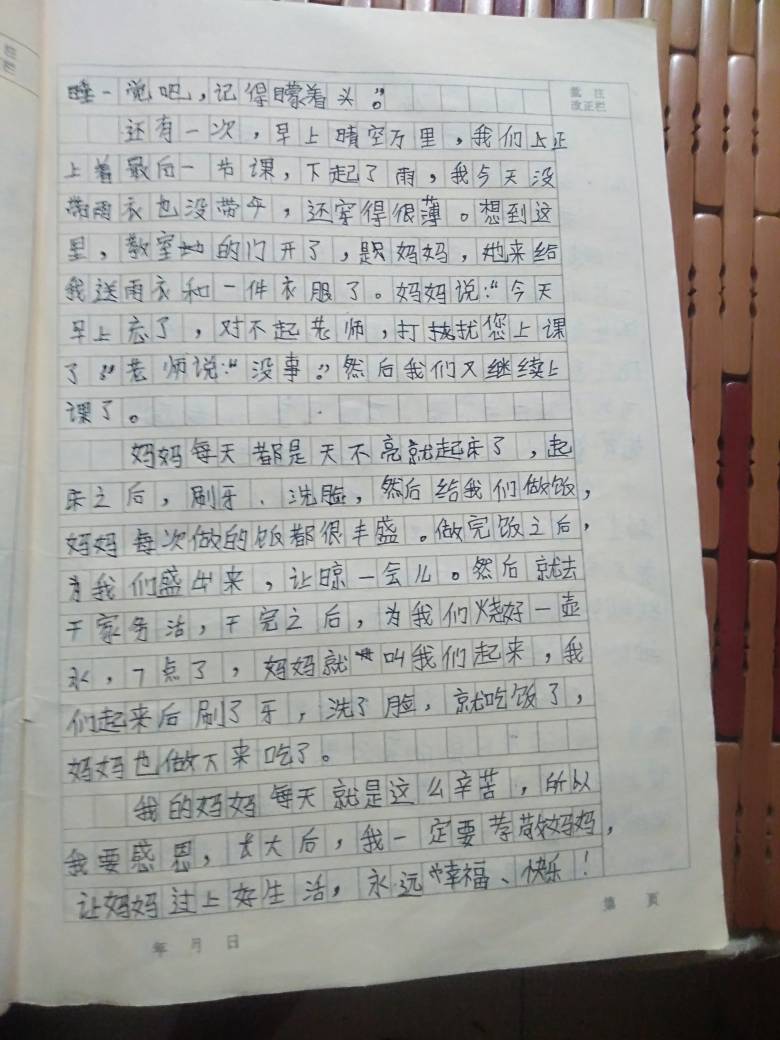 睡一觉吧，记得曚着头”。
批注
改正栏
还有一次，早上晴空万里，我们上正
上着最后一节课，下起了雨，我今天没
带雨衣也没带伞，还穿得很薄。想到这
里，教室的门开了，是妈妈，她来给
我送雨衣和一件衣服了。妈妈说：“今天
早上忘了，对不起老师，打扰您上课
了。”老师说：“没事。”然后我们又继续上
课了。
妈妈每天都是天不亮就起床了，起
床之后，刷牙、洗脸，然后给我们做饭，
妈妈每次做的饭都很丰盛。做完饭之后，
为我们盛出来，让晾一会儿。然后就去
干家务活，干完之后，为我们烧好一壶
水，7点了，妈妈就叫我们起来，我
们起来后刷了牙，洗了脸，就吃饭了，
妈妈也做下来吃了。
我的妈妈每天就是这么辛苦，所以
我要感恩，长大后，我一定要孝敬妈妈，
让妈妈过上好生活，永远幸福、快乐！
年 月 日
第 页